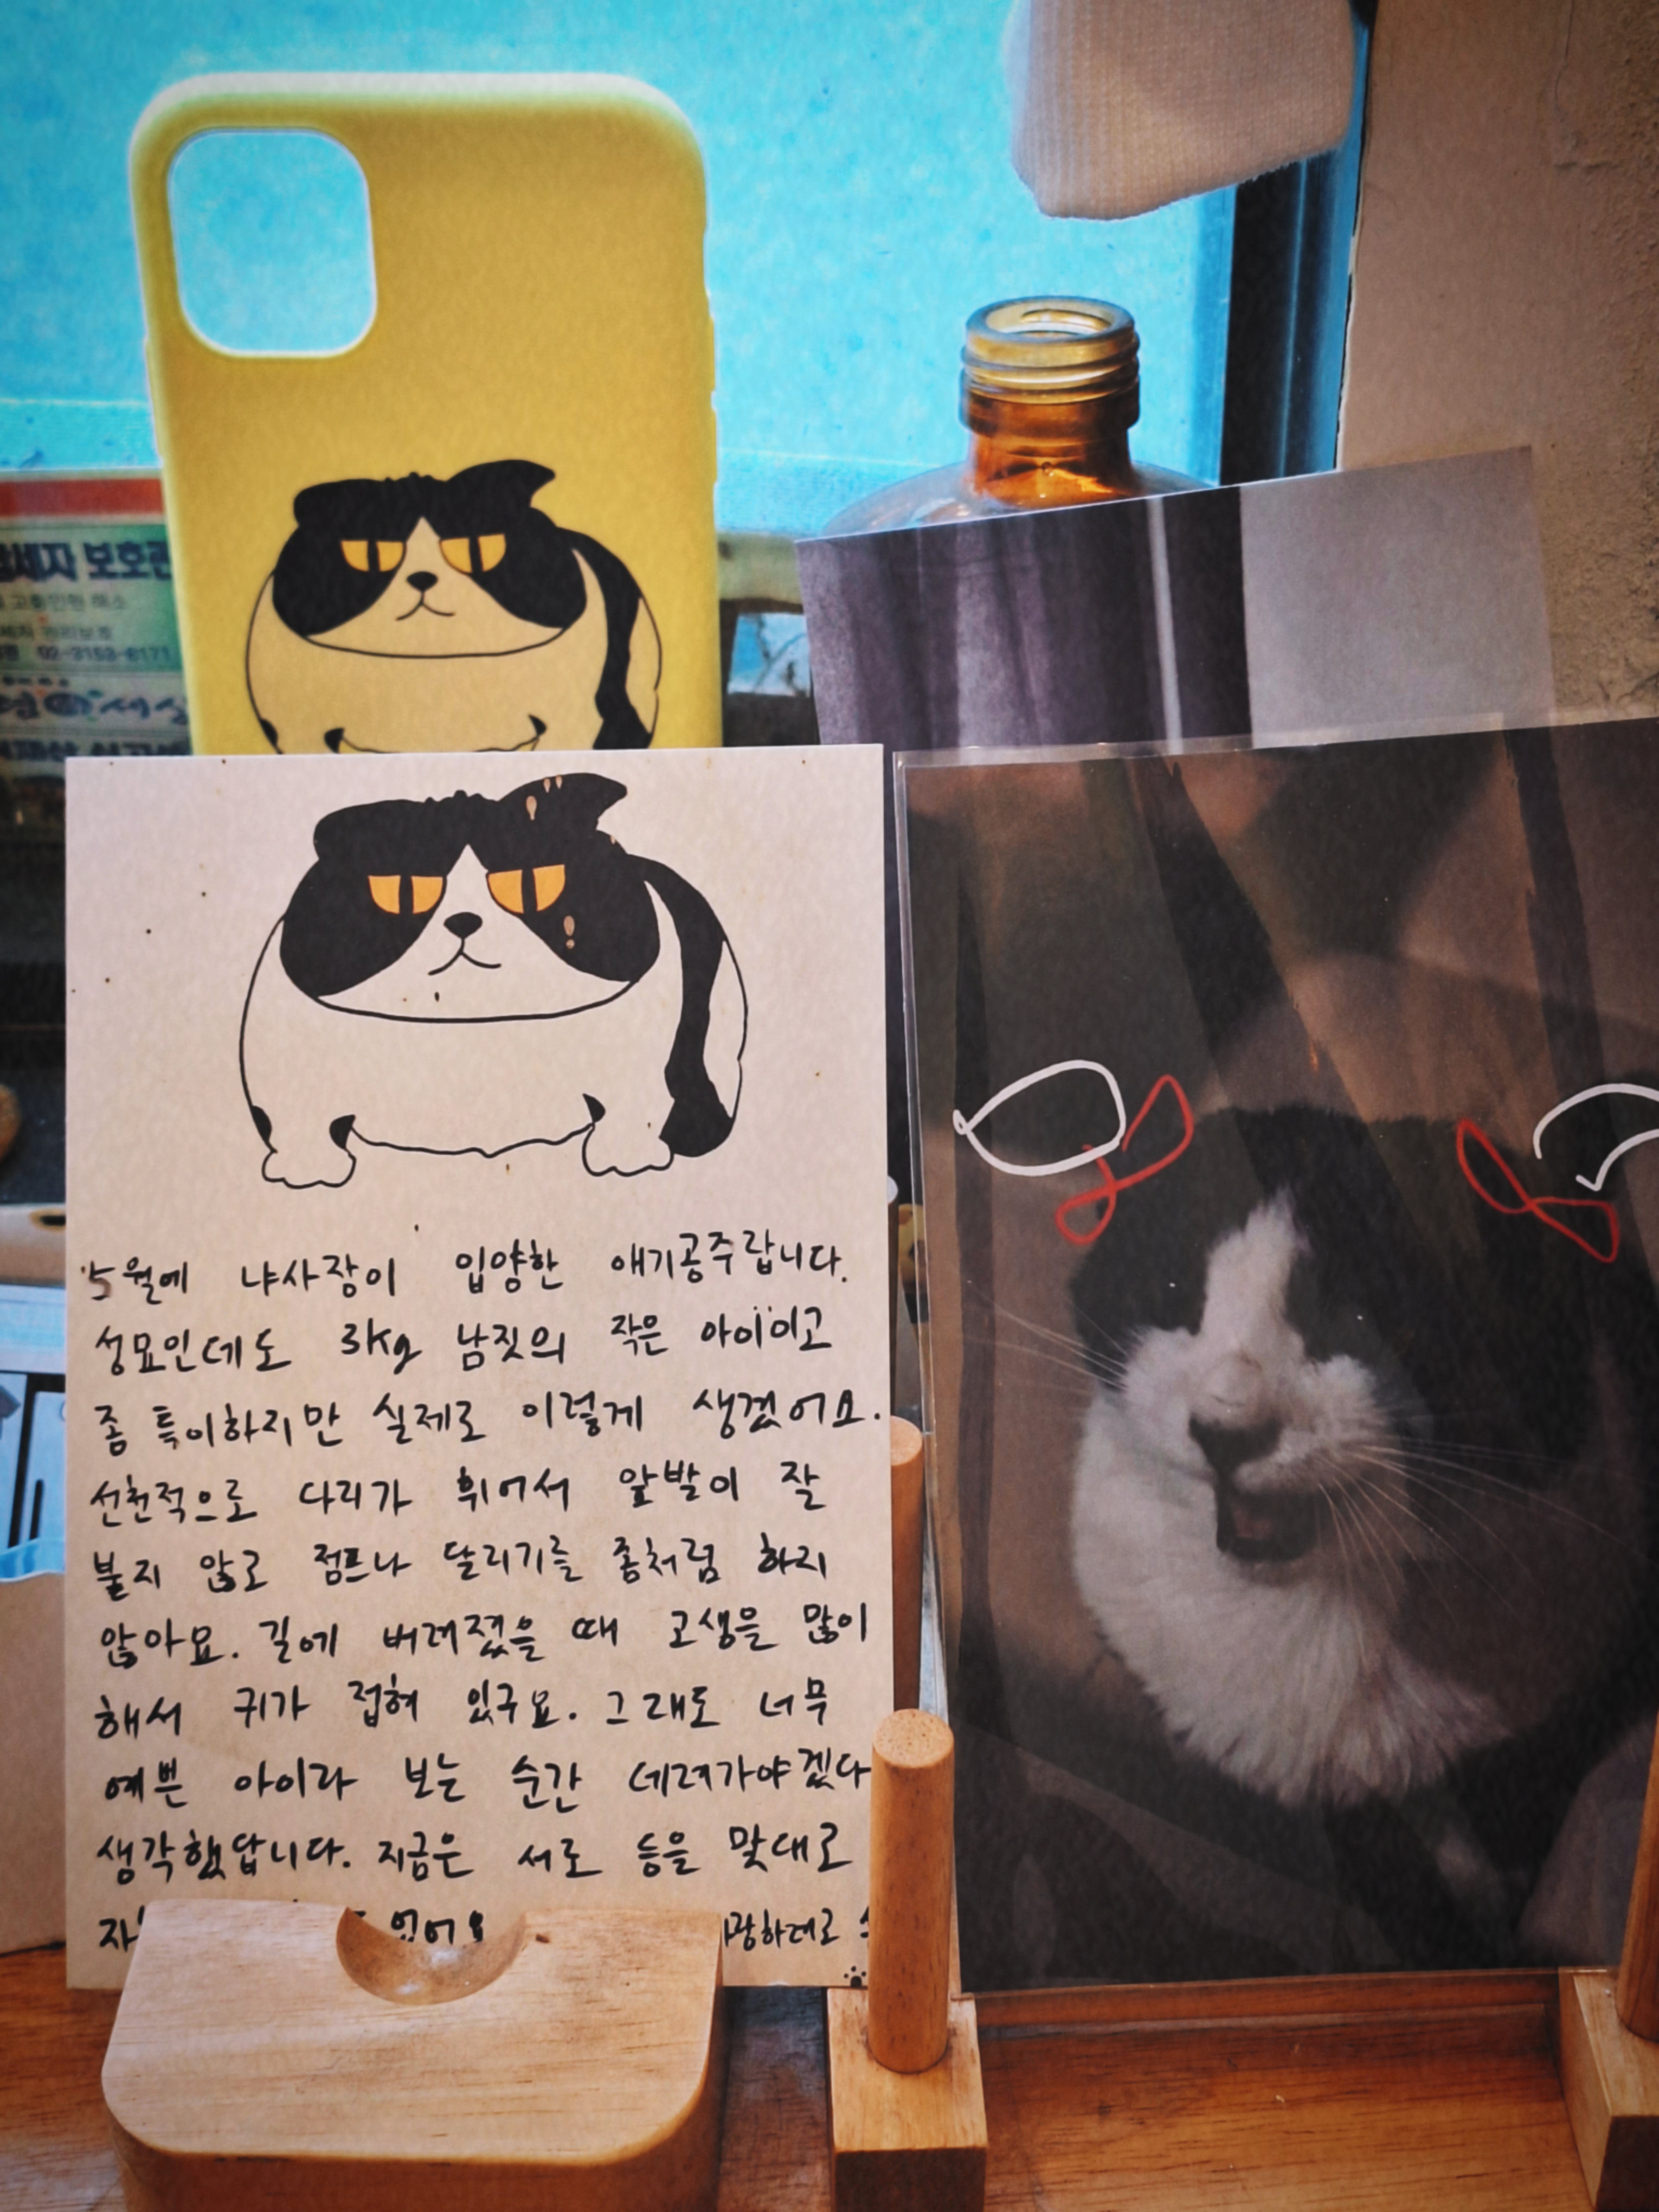 보호관
고충민원 해소
권리보호
02-2153-6171
5월에 냐사장이 입양한 애기공주랍니다.
성묘인데도 3kg 남짓의 작은 아이이고
좀 특이하지만 실제로 이렇게 생겼어요.
선천적으로 다리가 휘어서 앞발이 잘
붙지 않고 점프나 달리기를 좀처럼 하지
않아요. 길에 버려졌을 때 고생을 많이
해서 귀가 접혀 있구요. 그래도 너무
예쁜 아이라 보는 순간 데려가야겠다
생각했답니다. 지금은 서로 등을 맞대로